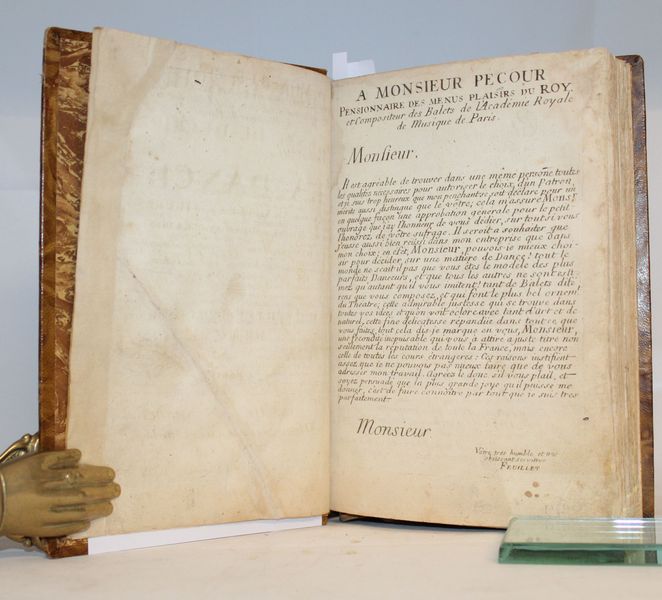 A MONSIEUR PECOUR
PENSIONNAIRE DES MENUS PLAISIRS DU ROY.
et Compositeur des Balets de l'Academie Royale
de Musique de Paris.
Monsieur.
Il est agréable de trouver dans une même personne toutes
les qualités nécessaires pour autoriser le choix d'un Patron,
et je suis trop heureux que mon penchant se soit déclaré pour un
mérite aussi distingué que le vôtre; cela m'assure Monsr.
en quelque façon une approbation generale pour le petit
ouvrage que j'ay l'honneur de vous dédier, sur tout si vous
l'honorez de vôtre sufrage. Il seroit à souhaiter que
j'eusse aussi bien reussi dans mon entreprise que dans
mon choix; en efet, Monsieur, pouvois-je mieux choi-
sir pour décider sur une matiere de Dance? tout le
monde ne scait-il pas que vous êtes le modéle des plus
parfaits Danceurs, et que tous les autres ne sont esti-
mez qu'autant qu'il vous imitent? tant de Balets dife-
rens que vous composez, et qui font le plus bel ornemt.
du Theatre; cette admirable justesse qui se trouve dans
toutes vos idées et qu'on voit éclore avec tant d'art et de
naturel, cette fine délicatesse répanduë dans tout ce que
vous faites, tout cela dis-je marque en vous, Monsieur,
une fecondité inepuisable qui vous à attiré à juste titre non
seullement la réputation de toute la France, mais encore
celle de toutes les cours étrangeres: Ces raisons justifient
assez, que je ne pouvois pas mieux faire que de vous
adresser mon travail. Agréez le donc s'il vous plaît, et
soyez persuadé que la plus grande joye qu'il puisse me
donner, c'est de faire connoître par tout que je suis tres
parfaitement
Monsieur
Votre tres humble et tres
obeissant serviteur
FEUILLET